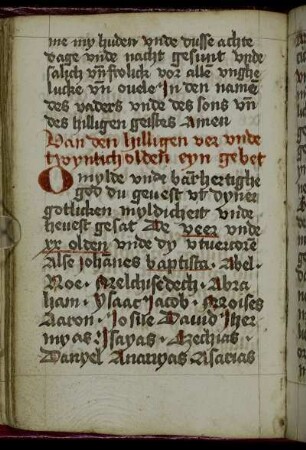 me my huden vnde dusse achte
dage vnde nacht gesunt vnde
salich vn̄ frolick vor alle vnghe
lucke vn̄ ouele In den name
des vaders vnde des sons vn̄
des hilligen geistes Amen
Van den hilligen ver vnde
twyntich olden eyn gebet
O mylde vnde barmhertighe
god du geuest vt dyner
gotliken myldicheit vnde
heuest gesat De veer vnde
xx olden vnde dy vtuerkorē
Alse Iohānes baptista · Abel ·
Noe · Melchisedech · Abra
ham · Ysaac Iacob · Moises
Aaron · Iosue Dauid Iher
myas Isayas · Azechias ·
Danyel Ananyas Asarias